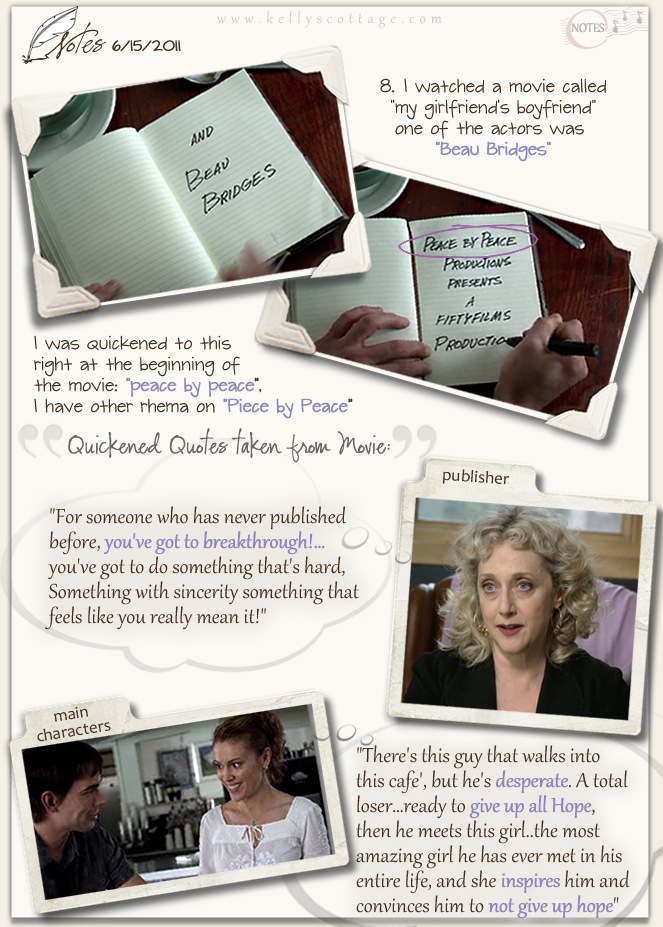 www.kellyscottage.com
NOTES
Notes 6/15/2011
8. I watched a movie called
"my girlfriend's boyfriend"
one of the actors was
"Beau Bridges"
AND
BEAU
BRIDGES
PEACE BY PEACE
PRODUCTIONS
PRESENTS
A
FIFTYFILMS
PRODUCTIO
I was quickened to this
right at the beginning of
the movie: "peace by peace",
I have other rhema on "Piece by Peace"
"Quickened Quotes taken from Movie:"
publisher
"For someone who has never published
before, you've got to breakthrough!...
you've got to do something that's hard,
Something with sincerity something that
feels like you really mean it!"
main
characters
"There's this guy that walks into
this cafe', but he's desperate. A total
loser...ready to give up all Hope,
then he meets this girl..the most
amazing girl he has ever met in his
entire life, and she inspires him and
convinces him to not give up hope"